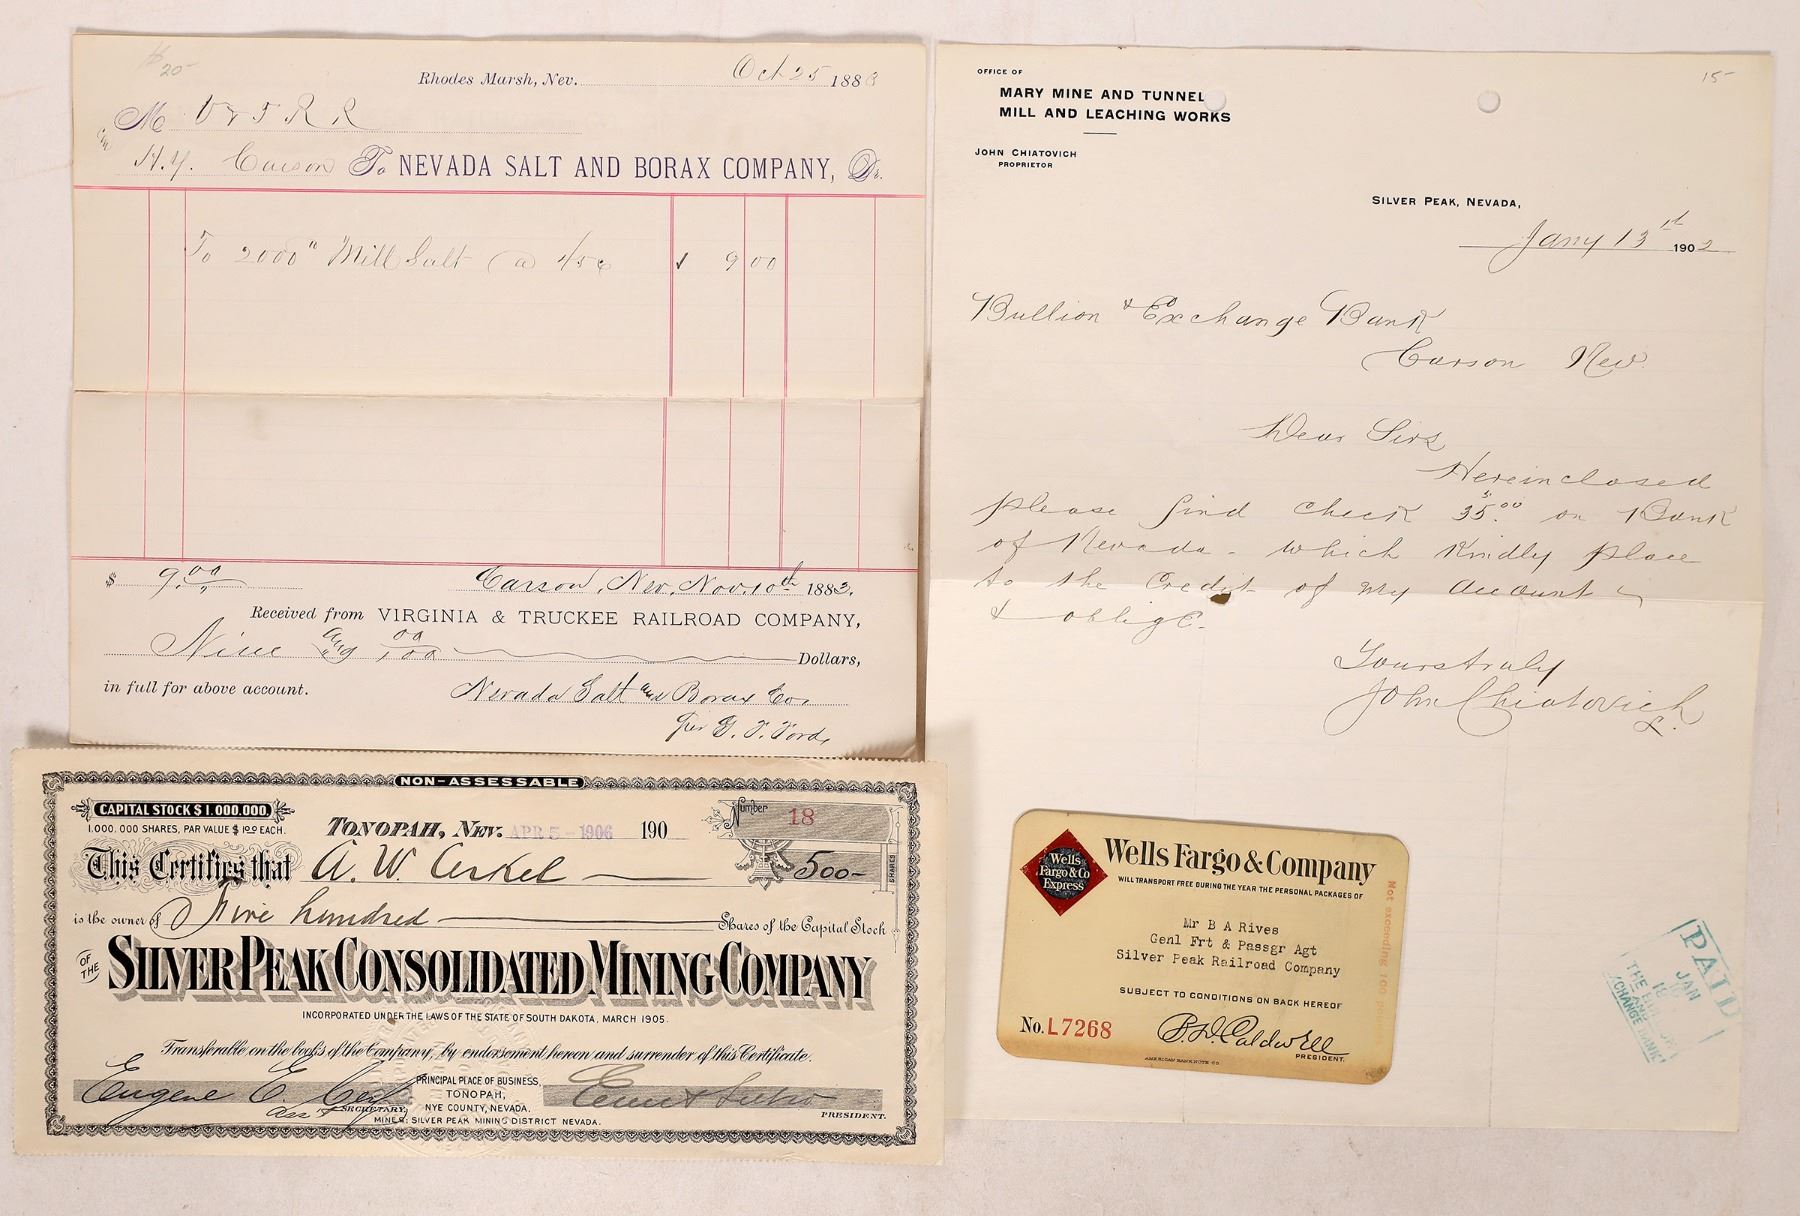 $20-
Rhodes Marsh, Nev. Oct 25 1883
M V & T R R
H.Y. Carson To NEVADA SALT AND BORAX COMPANY, Dr.
To 2000# Mill Salt @ 45c $ 9 00
$ 9.00 Carson, Nev. Nov. 10th 1883.
Received from VIRGINIA & TRUCKEE RAILROAD COMPANY,
Nine and 00/100 Dollars,
in full for above account. Nevada Salt and Borax Co.
per
15-
OFFICE OF
MARY MINE AND TUNNEL
MILL AND LEACHING WORKS
JOHN CHIATOVICH
PROPRIETOR
SILVER PEAK, NEVADA,
Jany 13th 1902
Bullion & Exchange Bank
Carson Nev.
Dear Sirs
Hereinclosed
please find check 35.00 on Bank
of Nevada - which kindly place
to the Credit of my account
& oblige.
Yours truly
John Chiatovich
PAID
JAN
18
THE BULLION
AND
EXCHANGE BANK
NON-ASSESSABLE
CAPITAL STOCK $1,000,000
1,000,000 SHARES, PAR VALUE $1.00 EACH.
TONOPAH, NEV. APR 5 - 1906 190
Number 18
This Certifies that A. W. Cerkel 500- SHARES
is the owner of Five hundred Shares of the Capital Stock
OF THE SILVER PEAK CONSOLIDATED MINING COMPANY
INCORPORATED UNDER THE LAWS OF THE STATE OF SOUTH DAKOTA, MARCH 1905.
Transferable on the books of the Company, by endorsement hereon and surrender of this Certificate.
Eugene E. Cerf
Ass't SECRETARY.
PRINCIPAL PLACE OF BUSINESS,
TONOPAH,
NYE COUNTY, NEVADA.
MINES: SILVER PEAK MINING DISTRICT NEVADA.
PRESIDENT.
Wells
Fargo & Co
Express
Wells Fargo & Company
WILL TRANSPORT FREE DURING THE YEAR THE PERSONAL PACKAGES OF
Mr B A Rives
Genl Frt & Passgr Agt
Silver Peak Railroad Company
SUBJECT TO CONDITIONS ON BACK HEREOF
No. L7268 B. D. Caldwell
PRESIDENT.
AMERICAN BANK NOTE CO.
Not exceeding 100 pounds